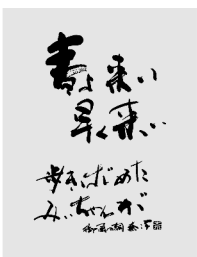 春よ来い
早く来い
歩きはじめた
みいちゃんが